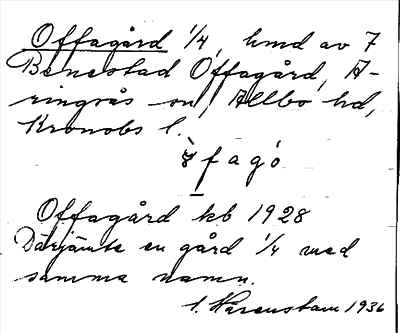 Offagård 1/4, hmd av 7
Benestad Offagård, A-
ringsås sn, Allbo hd,
Kronobs l.
fagó
Offagård kb 1928
Därjämte en gård 1/4 med
samma namn.
1936